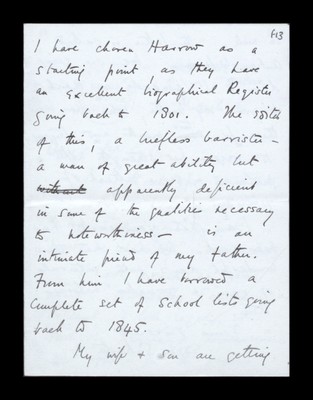 613
I have chosen Harrow as a
starting point, as they have
an excellent biographical Register
going back to 1801. The editor
of this, a briefless barrister -
a man of great ability but
without apparently deficient
in some of the qualities necessary
to noteworthiness - is an
intimate friend of my father.
From him I have borrowed a
complete set of School lists going
back to 1845.
My wife + son are getting